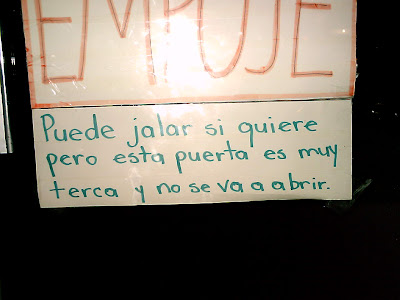 EMPUJE
Puede jalar si quiere
pero esta puerta es muy
terca y no se va a abrir.